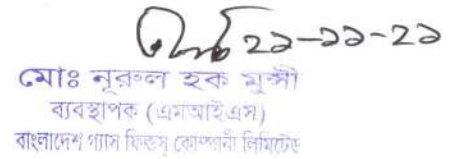 ২১-১১-২১
মোঃ নূরুল হক মুন্সী
ব্যবস্থাপক (এমআইএস)
বাংলাদেশ গ্যাস ফিল্ডস্ কোম্পানী লিমিটেড